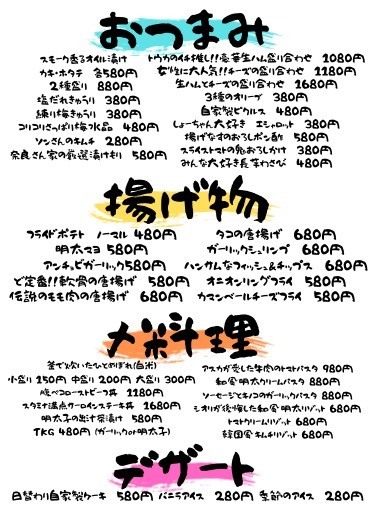 おつまみ
スモーク香るオイル漬け
カキ・ホタテ 各580円
2種盛り 880円
塩だれきゅうり 380円
練り梅きゅうり 380円
コリコリさっぱり梅水晶 480円
ソンさんのキムチ 280円
奈良さん家の厳選漬け物 580円
トウカのイチ推し!!豪華生ハム盛り合わせ 1080円
女性に大人気!!チーズの盛り合わせ 1180円
生ハムとチーズの盛り合わせ 1680円
3種のオリーブ 380円
自家製ピクルス 480円
しょーちゃん大好き エシャロット 380円
揚げなすのおろしポン酢 580円
スライストマトの塩おろしかけ 380円
みんな大好き長芋わさび 480円
揚げ物
フライドポテト ノーマル 480円
明太マヨ 580円
アンチョビガーリック580円
ど定番!!軟骨の唐揚げ 580円
伝説のもも肉の唐揚げ 680円
タコの唐揚げ 680円
ガーリックシュリンプ 680円
ハンサムなフィッシュ&チップス 680円
オニオンリングフライ 580円
カマンベールチーズフライ 580円
〆料理
釜で炊いたひとめぼれ(白米)
小盛り 150円 中盛り 200円 大盛り 300円
食べコローストビーフ丼 1180円
スタミナ満点サーロインステーキ丼 1680円
明太子の出汁茶漬け 580円
TKG 480円 (ガーリックor明太子)
アスカが愛した牛肉のトマトパスタ 980円
和風明太クリームパスタ 880円
ソーセージとキノコのガーリックパスタ 880円
シオリが後悔した和風明太リゾット 680円
トマトクリームリゾット 680円
韓国風キムチリゾット 680円
デザート
日替わり自家製ケーキ 580円 バニラアイス 280円 季節のアイス 280円